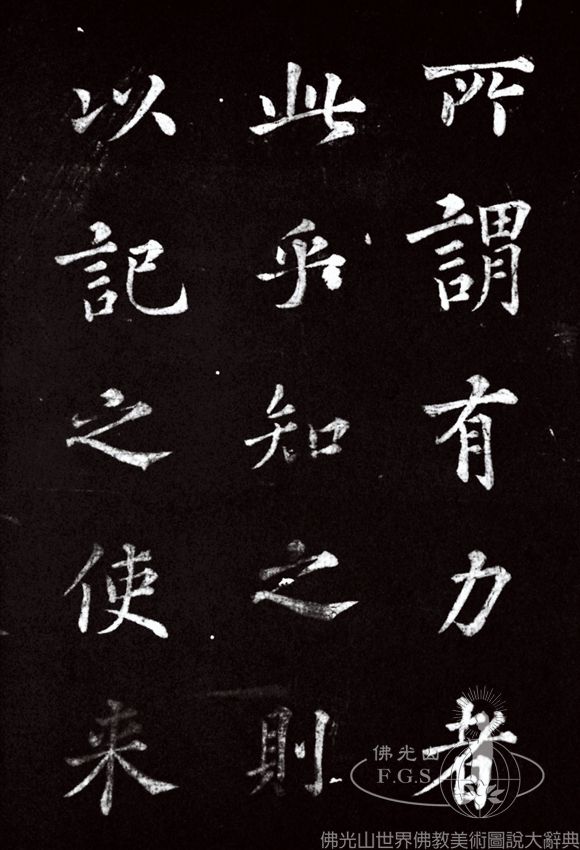 所謂有力者
此乎知之則
以記之使来
佛光山
F.G.S.
佛光山世界佛教美術圖說大辭典